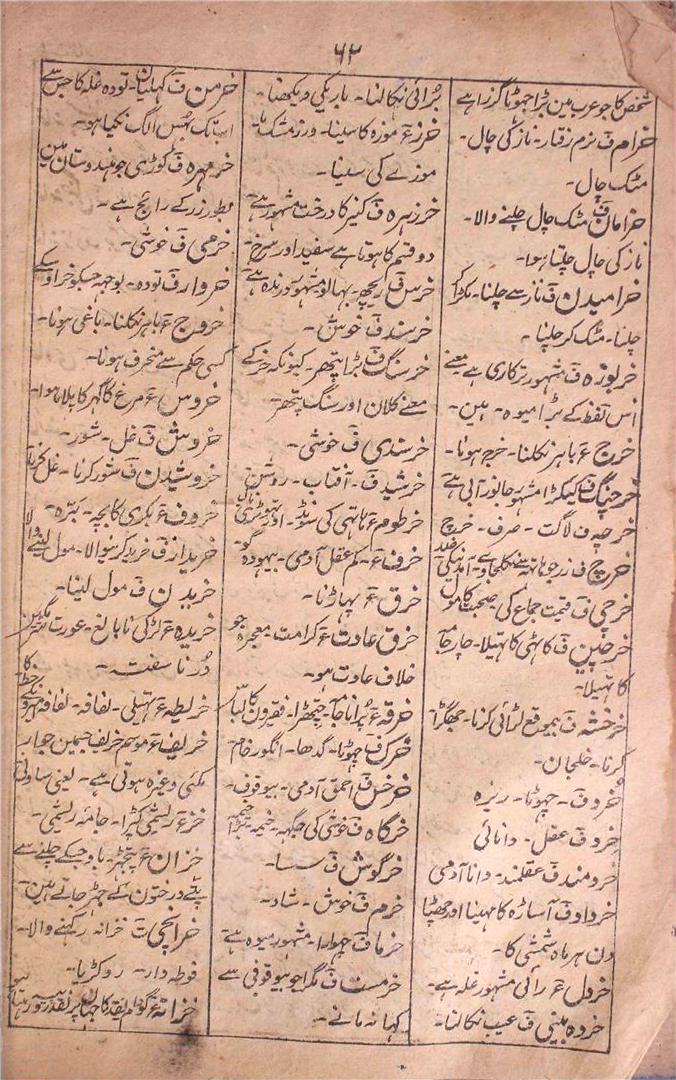 ۶۲
شخص کا جو عرب مین بڑا جھوٹا گزرا ہے
خرام ف نرم رفتار۔ ناز کی چال۔
مٹک چال۔
خرامان ف مٹک چال چلنے والا۔
ناز کی چال چلتا ہوا۔
خرامیدن ف ناز سے چلنا۔ اکڑ کے
چلنا۔ مٹک کر چلنا۔
خربوزہ ف مشہور ترکاری ہے معنے
اس لفظ کے بڑا میوہ۔ ہین۔
خرج ع باہر نکلنا۔ خرچ ہونا۔
خرچنگ ف کیکڑا مشہور جانور آبی ہے
خرچہ ف لاگت۔ صرف۔ خرچ
خرچ ف زر جو ہاتھ سے نکلجاوے۔
خرچی ف قیمت جماع کی۔ صحبت کا مول
خرجین ف کاٹھی کا تھیلا۔ چارجامے
کا تھیلا۔
خرخشہ ف بیموقع لڑائی کرنا۔ جھگڑا
کرنا۔ خلجان۔
خرد ف۔ چھوٹا۔ ریزہ
خرد ف عقل۔ دانائی
خردمند ف عقلمند۔ دانا آدمی
خرداد ف آساڑہ کا مہینا اور چھٹا
دن ہر ماہ شمسی کا۔
خردل ع رائی مشہور غلہ ہے۔
خردہ بینی ف عیب نکالنا۔
برائی نکالنا۔ باریکی دیکھنا۔
خرز ع موزہ کا سینا۔ درز مشک یا
موزے کی سینا۔
خرزہرہ ف کنیر کا درخت مشہور ہے
دو قسم کا ہوتا ہے سفید اور سرخ
خرس ف ریچھ۔ بھالو مشہور درندہ ہے
خرسند ف خوش۔
خرسنگ ف بڑا پتھر۔ کیونکہ خر کے
معنے کلان اور سنگ پتھر
خرسندی ف خوشی۔
خرشید ف۔ آفتاب۔ روشن
خرطوم ع ہاتھی کی سونڈ۔ اور
خرف ع۔ کم عقل آدمی۔ بیہودہ گو
خرق ع پہاڑنا۔
خرق عادت ع کرامت۔ معجزہ جو
خلاف عادت ہو۔
خرقہ ع پرانا جامہ۔ چیتھڑا۔ فقیرون کا لباس
خرک ف چھوٹا۔ گدھا۔ انگور خام
خرخل ف احمق آدمی۔ بیوقوف۔
خرگاہ ف خوشی کی جگہہ۔ خیمہ۔ بڑا خیمہ
خرگوش ف سسا۔
خرم ف خوش۔ شاد۔
خرما ف چہوارا۔ مشہور میوہ ہے
خرمست ف مگرا جو بیوقوفی سے
کہا نہ مانے۔
خرمن ف کھلیان۔ تودہ غلہ کا جس سے
ابتک بھس الگ نکیا ہو۔
خرمہرہ ف کوڑی جو ہندوستان مین
بطور زر کے رائج ہے۔
خرمی ف خوشی۔
خروار ف تودہ۔ بوجھہ جسکو خر اوٹھا سکے
خروج ع باہر نکلنا۔ باغی ہونا۔
کسی حکم سے منحرف ہونا۔
خروس ع مرغ گاگھر کا پلا ہوا۔
خروش ف غل۔ شور۔
خروشیدن ف شور کرنا۔ غل کرنا
خروف ع بکری کا بچہ۔ برّہ۔
خریدار ف خرید کرنیوالا۔ مول لینے والا
خریدن ف مول لینا۔
خریدہ ع لڑکی نابالغ۔ عورت شرمگین
دُرِ ناسفتہ۔
خریطہ ع تھیلی۔ لفافہ۔
خریف ع موسم خریف جسمین جوار
مکئی وغیرہ ہوتی ہے۔ یعنی ساونی
خز ع ریشمی کپڑا۔ جامہ ریشمی۔
خزان ع پتجھڑ۔ باد جسکے چلنے سے
پتے درختون کے جھڑ جاتے ہین۔
خزانچی ت خزانہ رکھنے والا۔
فوطہ دار۔ روکڑیا۔
خزانہ ع گودام نقد کا جہان پر نقد زر ہوتا